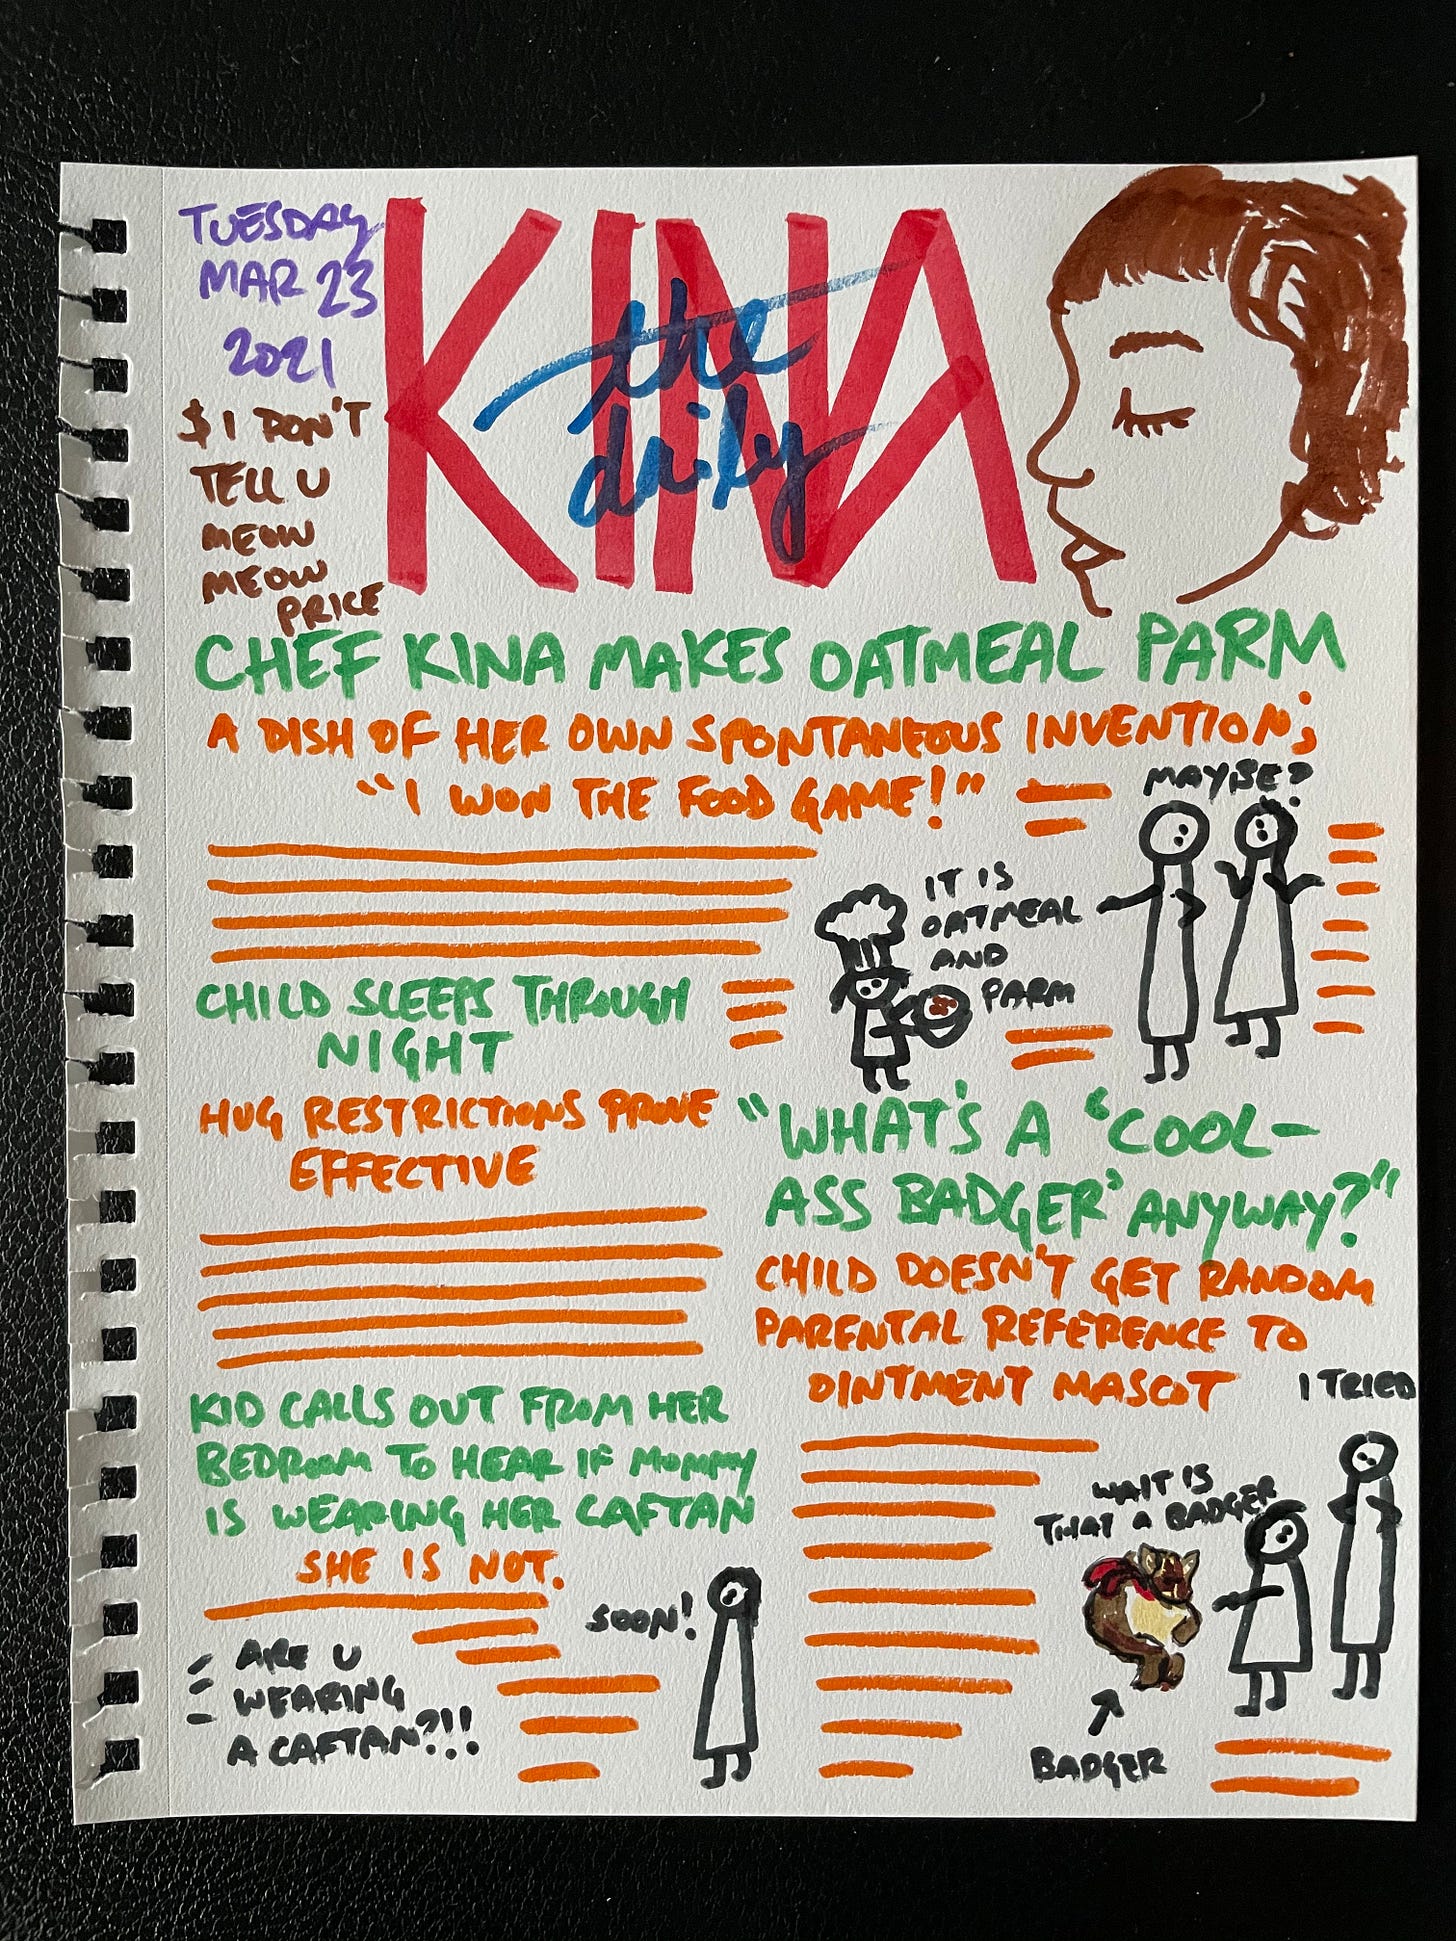 TUESDAY
MAR 23
2021
$ I DON'T
TELL U
MEOW
MEOW
PRICE
KINA
the
daily
CHEF KINA MAKES OATMEAL PARM
A DISH OF HER OWN SPONTANEOUS INVENTION;
"I WON THE FOOD GAME!"
MAYBE?
IT IS
OATMEAL
AND
PARM
CHILD SLEEPS THROUGH
NIGHT
HUG RESTRICTIONS PROVE
EFFECTIVE
"WHAT'S A 'COOL-
ASS BADGER' ANYWAY?"
CHILD DOESN'T GET RANDOM
PARENTAL REFERENCE TO
OINTMENT MASCOT
I TRIED
WAIT IS
THAT A BADGER
BADGER
KID CALLS OUT FROM HER
BEDROOM TO HEAR IF MOMMY
IS WEARING HER CAFTAN
SHE IS NOT.
SOON!
ARE U
WEARING
A CAFTAN?!!